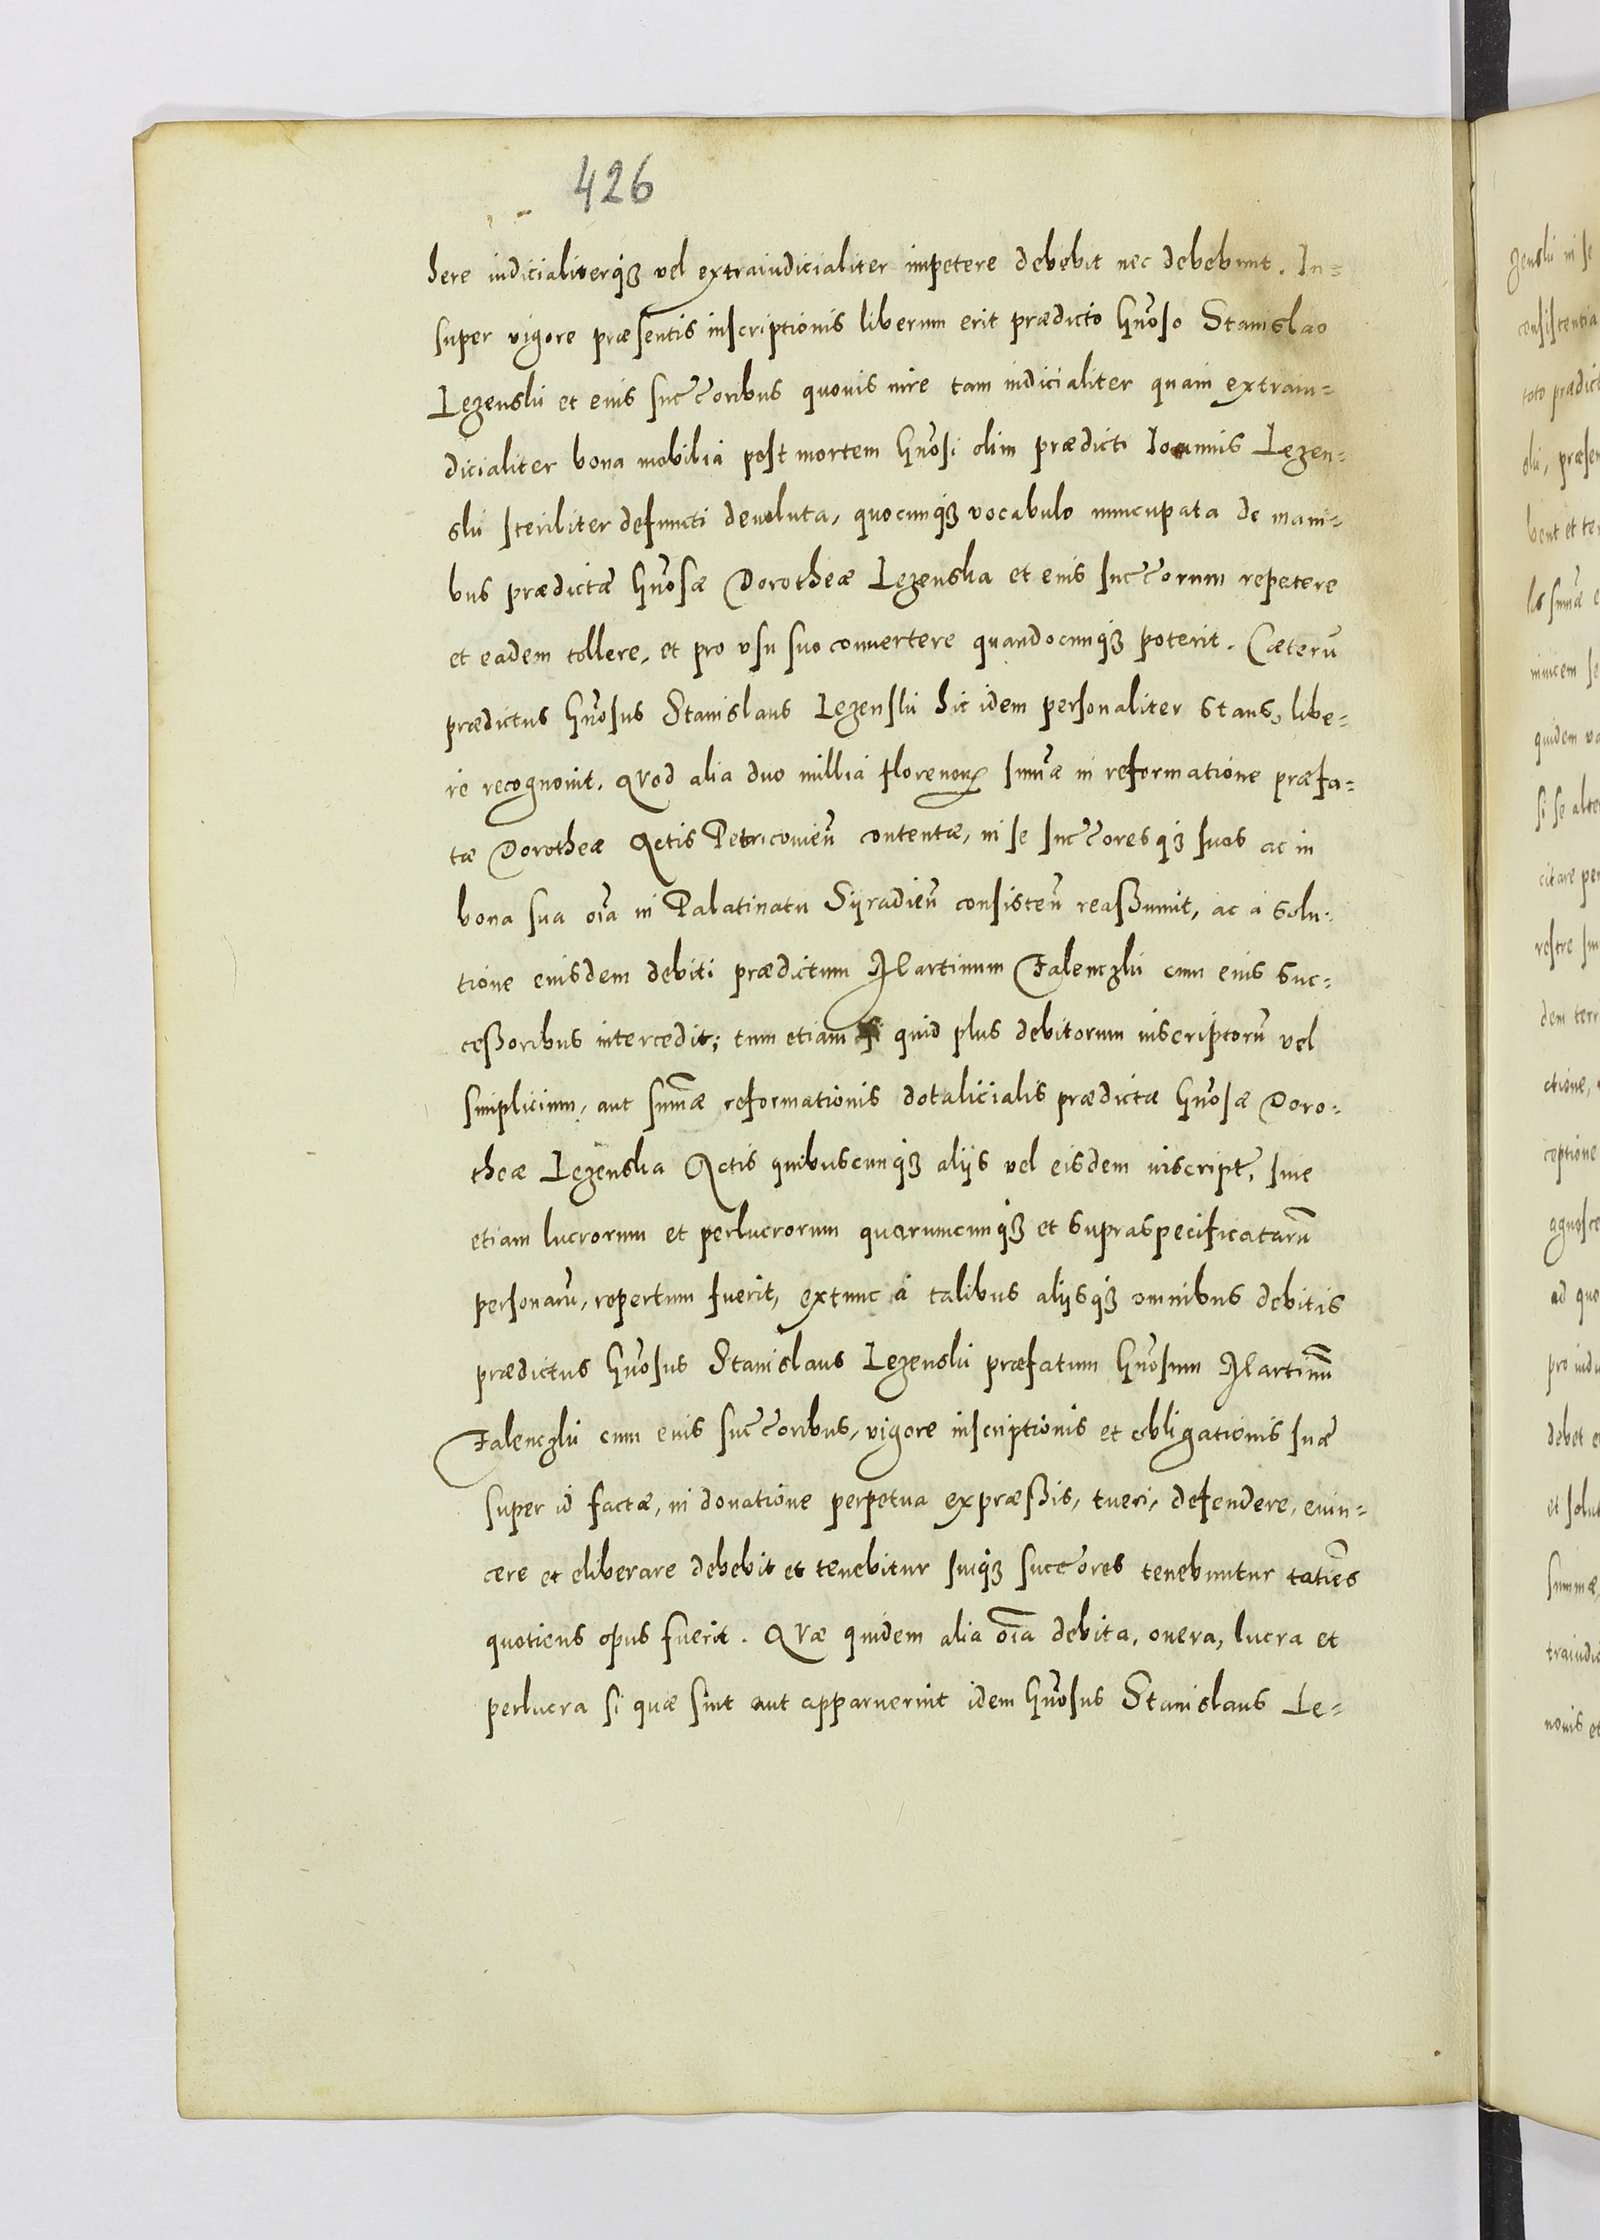 426
here iudicialiterq3 vel extraiudicialiter impetere debebit nec debebunt. In=
super vigore præsentis inscriptionis liberum erit prædicto Gñoso Stanislao
Lezenski et eius succ̃oribus quouis iure tam iudicialiter quam extraiu=
dicialiter bona mobilia post mortem Gñosi olim prædicti Ioannis Lezen=
ski steriliter defuncti deuoluta, quocunq3 vocabulo nuncupata de mani=
bus prædictæ Gñosæ Dorotheæ Lezenska et eius succ̃orum repetere
et eadem tollere, et pro vsu suo conuertere quandocunq3 poterit. Cæterũ
prædictus Gñosus Stanislaus Lezenski hic idem personaliter stans, libe=
re recognouit. Quod alia duo millia florenoꝝ sum̃æ in reformatione præfa=
tæ Dorotheæ Actis Petricouieñ contentæ, in se succ̃oresq3 suos ac in
bona sua oĩa in Palatinatu Syradieñ consisteñ reaßumit, ac à solu=
tione eiusdem debiti prædictum Martinum Falenczki cum eius suc=
ceßoribus intercedit; tum etiam si quid plus debitorum inscriptorũ vel
simplicium, aut sum̃æ reformationis dotalicialis prædictæ Gñosæ Doro=
theæ Lezenska Actis quibuscunq3 alijs vel eisdem inscript̃, siue
etiam lucrorum et perlucrorum quarumcunq3 et supraspecificatarũ
personarũ, repertum fuerit, extunc à talibus alijsq3 omnibus debitis
prædictus Gñosus Stanislaus Lezenski præfatum Gñosum Martinũ
Falenczki cum eius succ̃oribus, vigore inscriptionis et obligationis suæ
super id factæ, in donatione perpetua expræßis, tueri, defendere, euin=
cere et eliberare debebit et tenebitur suiq3 succ̃ores tenebuntur tatiẽs
quotiens opus fuerit. Quæ quidem alia oĩa debita, onera, lucra et
perlucra si quæ sint aut apparuerint idem Gñosus Stanislaus Le=